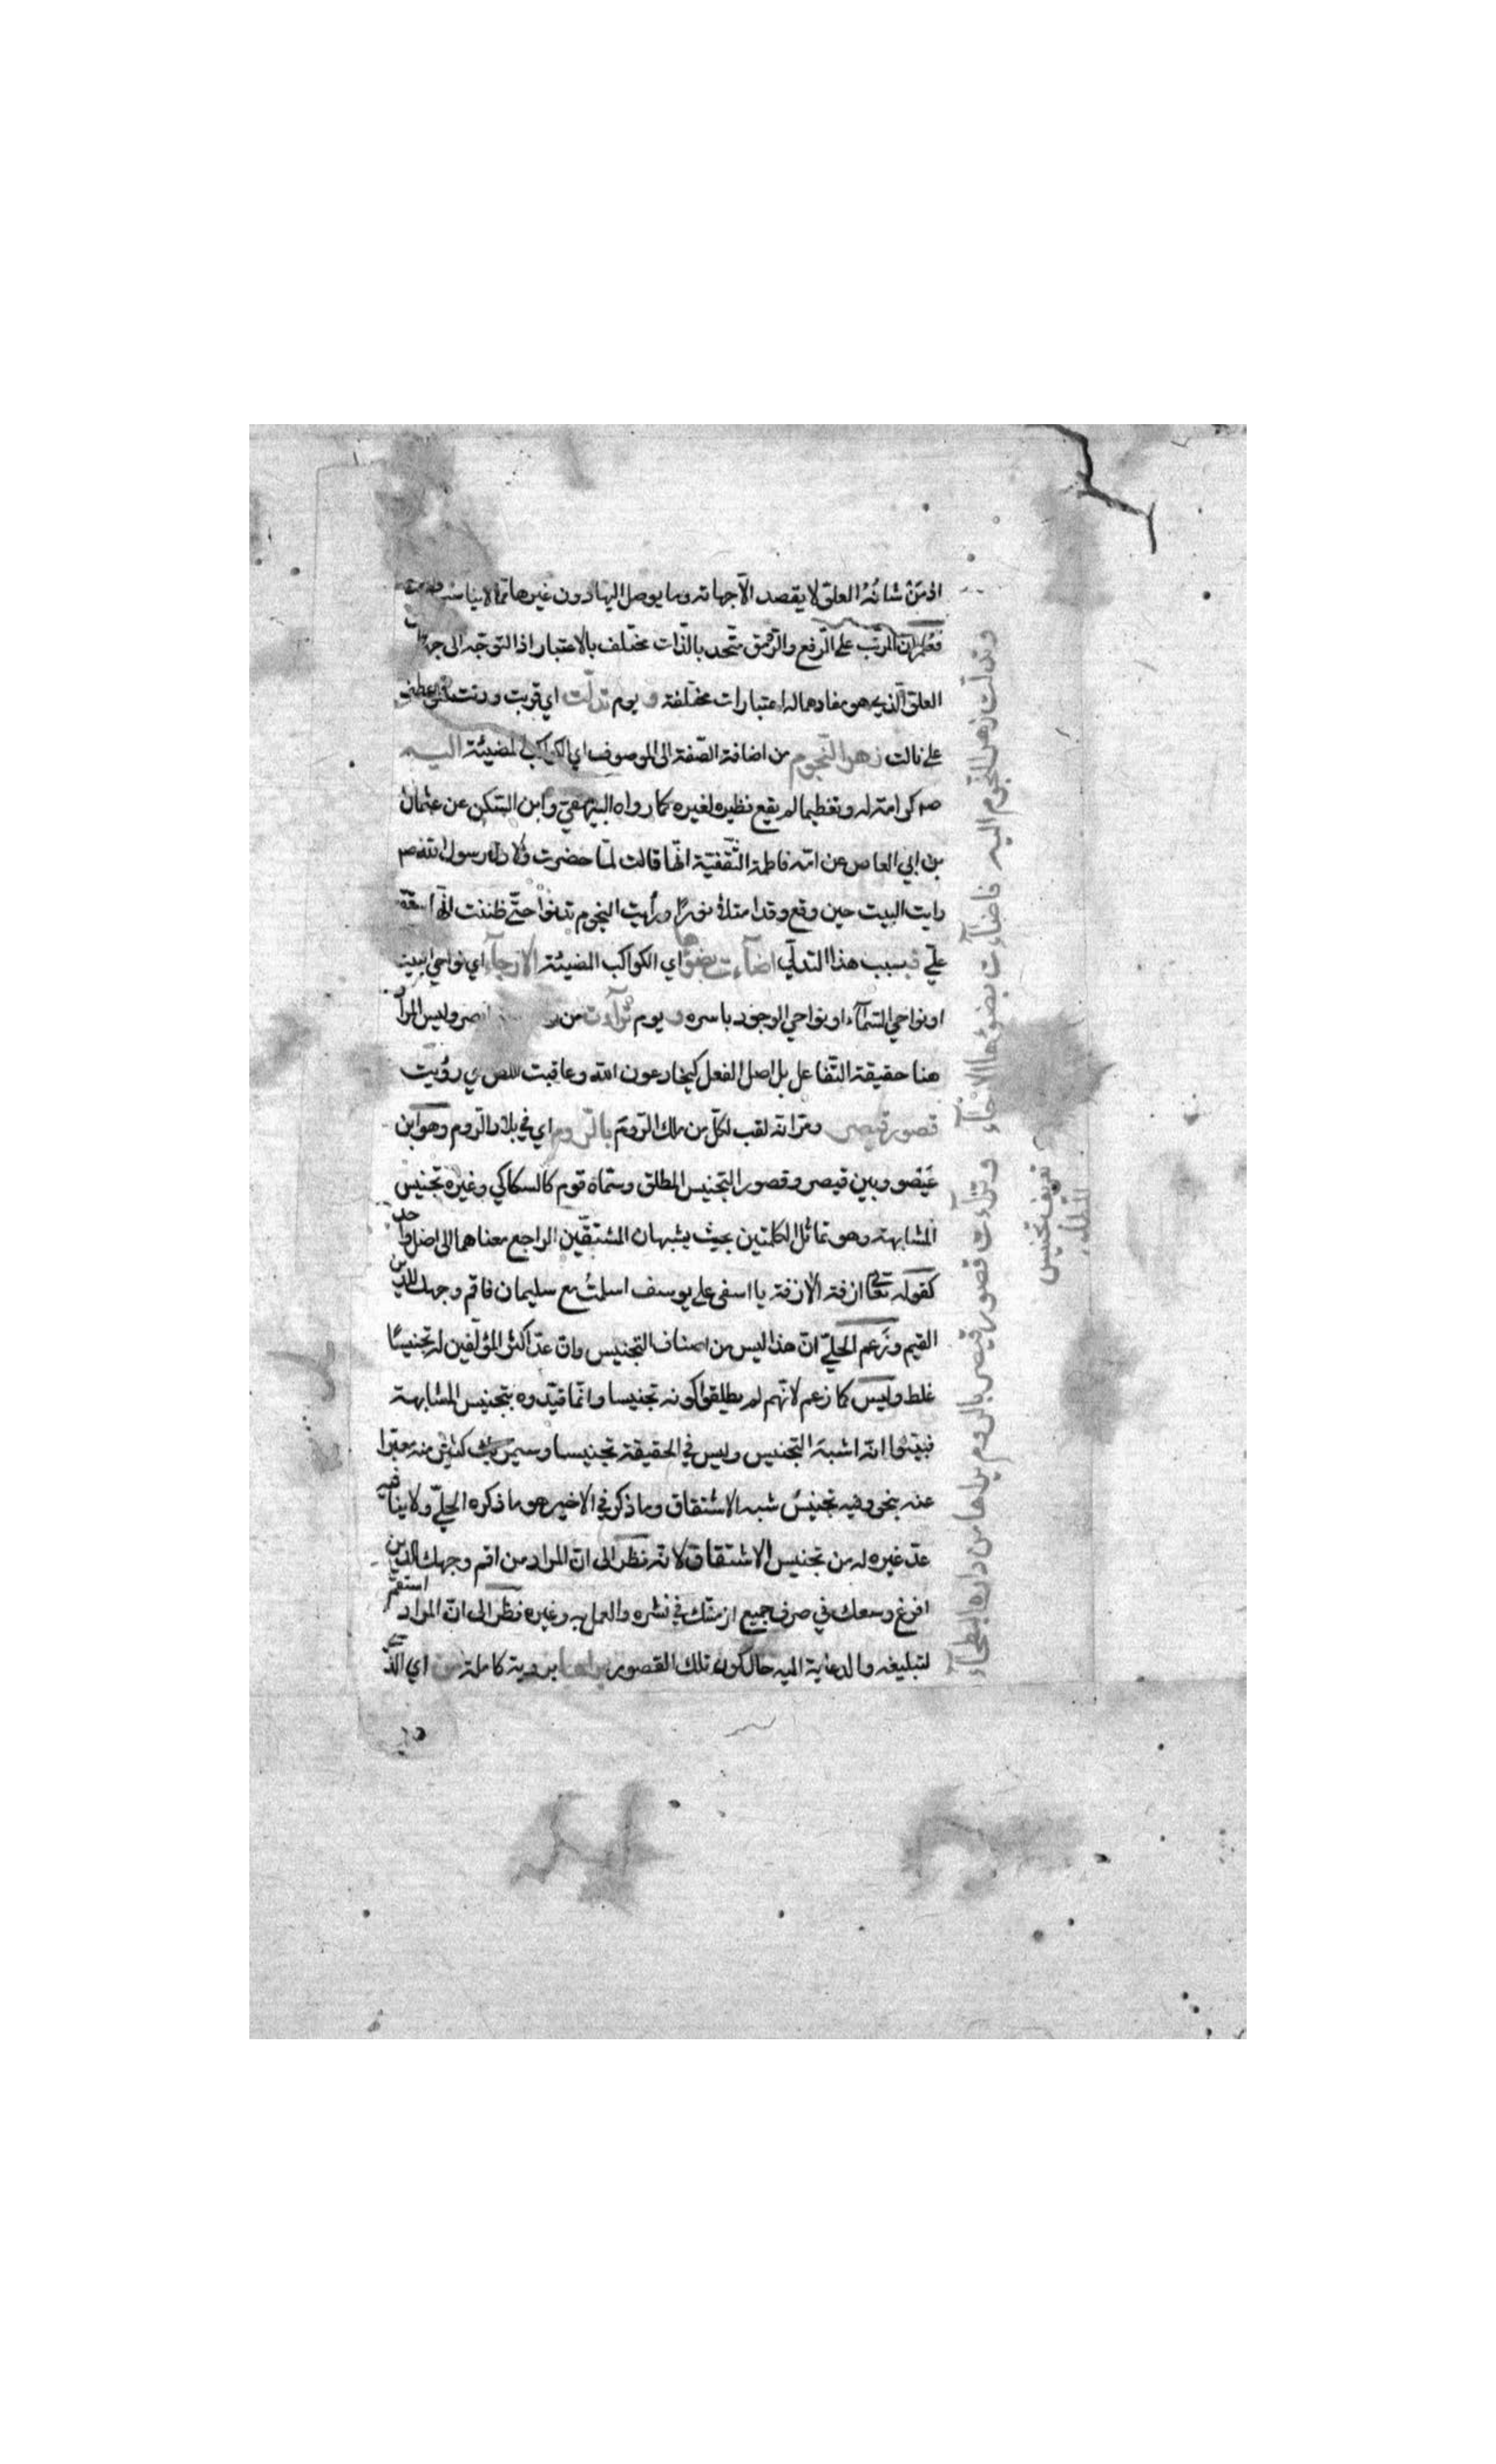 اذ مَنْ شانُهُ العلوّ لا يقصد الّا جهاته وما يوصل اليها دون غيرها ممّا لا يناسبه
فعُلِم ان المرتّب على الرفع والرّمق متّحد بالذّات مختلف بالاعتبار اذ التوجّه الى جهات
العلوّ الّذي هو مفادهما له اعتبارات مختلفة و يوم تدلّت اي قربت ودنت
على نالت زهر النّجوم من اضافة الصّفة الى الموصوف اي الكواكب المضيئة اليه
صم كرامة له وتعظيما لم يقع نظيره لغيره كما رواه البيهقي وابن السّكن عن عثمان
بن ابي العاص عن امّه فاطمة الثّقفيّة انّها قالت لمّا حضرت ولادة رسول الله صم
رايت البيت حين وقع وقد امتلأ نورًا ورأيت النجوم تدنوا حتّى ظننت انّها ستقع
عليّ فبسبب هذا التدلّي اضآءت بضوئها اي الكواكب المضيئة الارجآء اي نواحي
او نواحي السّمآء او نواحي الوجود باسره و يوم ترآءت من وليس المراد
هنا حقيقة التّفاعل بل اصل الفعل كيخادعون الله وعاقبت اللص اي رؤيت
قصور قيصر ومرّ انّه لقب لكلّ من ملك الرّوم بالرّوم اي في بلاد الرّوم وهو ابن
عيصو وبين قيصر وقصور التجنيس المطلق وسمّاه قوم كالسكاكي وغيره تجنيس
المشابهة وهو تماثل الكلمتين بحيث يشبهان المشتقّين الراجع معناهما الى اصل واحد
كقوله تعالى ازفة الآزفة يا اسفى على يوسف اسلمتُ مع سليمان فاقم وجهك للدين
القيم وزعم الحليّ انّ هذا ليس من اصناف التجنيس وانّ عدّ اكثر المؤلّفين له تجنيسًا
غلط وليس كما زعم لانّهم لم يطلقوا كونه تجنيسا وانّما قيّدوه بتجنيس المشابهة
فبيّنوا انّه اشبهَ التجنيس وليس في الحقيقة تجنيسا وسيمرّ بك كثير منه معبّرا
عنه بنحو وفيه تجنيسُ شبه الاشتقاق وما ذكر في الاخير هو ما ذكره الحليّ ولا ينافيه
عدّ غيره له من تجنيس الاشتقاق لانّه نظر الى انّ المراد من اقم وجهك للدين
افرغ وسعك في صرف جميع ازمنتك في نشره والعمل به وغيره نظر الى انّ المراد استقم
لتبليغه والدعاية اليه حال كون تلك القصور يراها برؤية كاملة من اي الّذي
وتدلّت زهر النّجوم اليه فاضآءت بضوئها الارجآء وترآءت قصور قيصر بالروم يراها من داره البطحآء
تعريف تجنيس
المطلق